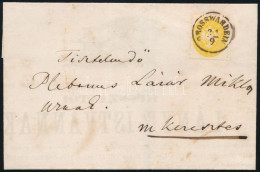 GROSSWARDEIN
Tisztelendő
Plebanus Lázár Miklós
Urnak.
m Keresztes